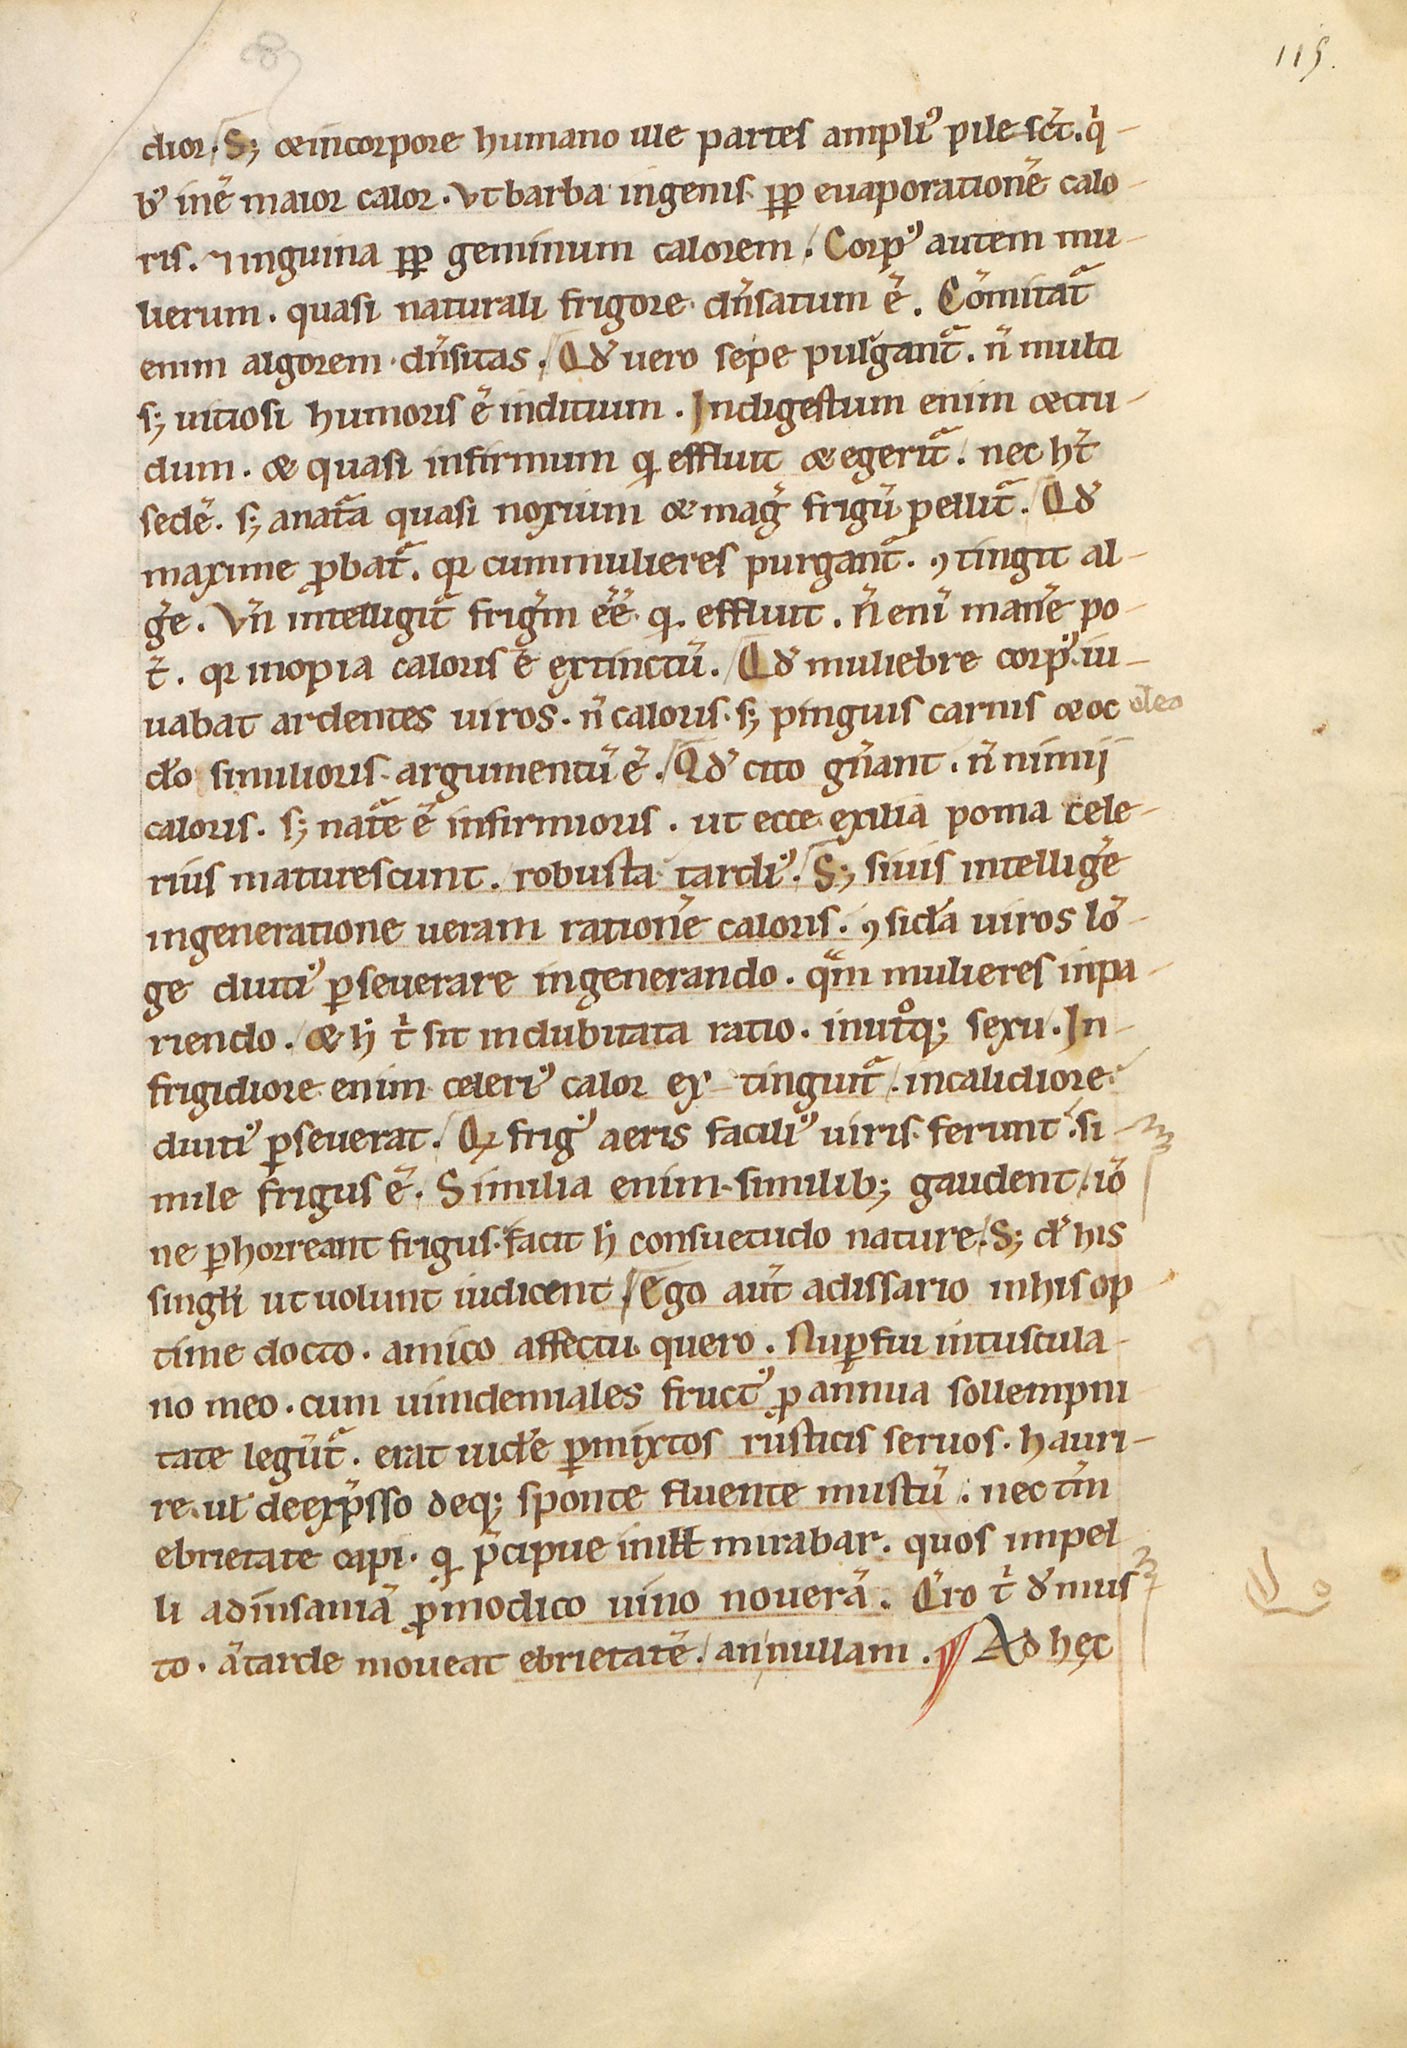 115.
dior. S; & in corpore humano ille partes ampli᾽ pile sc̄t. qͥ
b᾽ inē maior calor. Vt barba in genis. ꝓp euaporationē calo
ris. ⁊ inguina ꝓp geminum calorem. Corp᾽ autem mu
lierum. quasi naturali frigore dn̄satum ē. Cōmitat᷑
enim algorem dn̄sitas. Qđ uero sepe purgant᷑. n̄ multi
s; uitiosi humoris ē inditium. Indigestum enim & cru
dum. & quasi infirmum qđ effluit & egerit᷑. nec ht̄
sedē. s; a nat̄a quasi noxium & mag᷑ frigū pellit᷑. Qđ
maxime ꝓbat᷑. qꝛ cum mulieres purgant᷑. ꝯtingit al
ḡe. Vn̄ intelligit᷑ frig᷑m ēē. qđ effluit. n̄ enī manē po
t̄. qꝛ inopia caloris ē extinctū. Qđ muliebre corp᾽ iu
uabat ardentes uiros. n̄ caloris. s; pinguis carnis & oc oleo
cl̄o similioris argumentū ē. Qđ cito gn̄ant. n̄ nimij
caloris. s; nat̄e ē infirmioris. ut ecce exilia poma cele
rius maturescunt. robusta tardi᾽. S; si uis intelliḡe
in generatione ueram rationē caloris. ꝯsid̄a uiros lō
ge diuti᾽ ꝑseuerare in generando. qᵃ̄m mulieres in pa
riendo. & h̄ t̄ sit indubitata ratio. in utͦq; sexu. In
frigidiore enim celeri᾽ calor ex tinguit᷑. in calidiore
diuti᾽ ꝑseuerat. Qꝛ frig᾽ aeris facili᾽ uiris ferunt. si
mile frigus ē. Similia enim similib; gaudent. iō
ne ꝑhorreant frigus facit h̄ consuetudo nature. S; d̄ his
singl̄i ut uolunt iudicent. Ego aut̄ a dissario in his op
time docto. amico affectu quero. Nuꝑ fui in tuscula
no meo. cum uindemiales fruct᾽ ꝓ annua sollempni
tate legūt᷑. erat uid̄e ꝑmixtos rusticis seruos. hauri
re. ul̄ de exp̄sso de q; sponte fluente mustū. nec tn̄
ebrietate capi. qđ p̄cipue in ill̄ mirabar. quos impel
li ad insaniā ꝓ modico uino nouerā. Q̄ro t̄ đ mus
to. ā tarde moueat ebrietatē. an nullam. Ad hęc